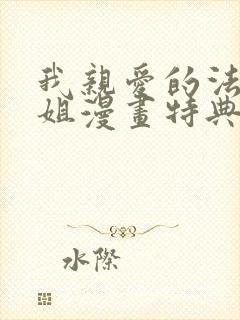 我親愛的法
姐漫畫特典
水際